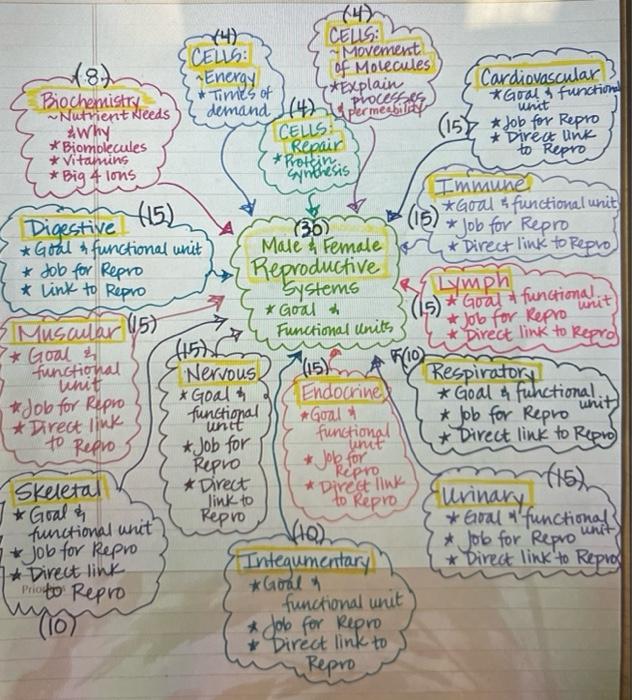 (8)
Biochemistry
~Nutrient Needs
& Why
* Biomolecules
* Vitamins
* Big 4 Ions
(4)
CELLS:
~Energy
* Times of
demand
(4)
CELLS:
~Movement
of Molecules
* Explain
processes
& permeability
(4)
CELLS:
Repair
* Protein
synthesis
Cardiovascular
* Goal & functional
unit
* Job for Repro
* Direct link
to Repro
(15)
Immune
* Goal & functional unit
* Job for Repro
* Direct link to Repro
(15)
Digestive
(15)
* Goal & functional unit
* Job for Repro
* Link to Repro
(30)
Male & Female
Reproductive
Systems
* Goal &
Functional Units
Lymph
* Goal & functional
unit
* Job for Repro
* Direct link to Repro
(15)
Muscular
(15)
* Goal &
functional
unit
* Job for Repro
* Direct link
to Repro
(15)
Nervous
* Goal &
functional
unit
* Job for
Repro
* Direct
link to
Repro
(15)
Endocrine
* Goal &
functional
unit
* Job for
Repro
* Direct link
to Repro
(10)
Respiratory
* Goal & functional
unit
* Job for Repro
* Direct link to Repro
Skeletal
* Goal &
functional unit
* Job for Repro
* Direct link
to Repro
(10)
(15)
Urinary
* Goal & functional
unit
* Job for Repro
* Direct link to Repro
(10)
Integumentary
* Goal &
functional unit
* Job for Repro
* Direct link to
Repro